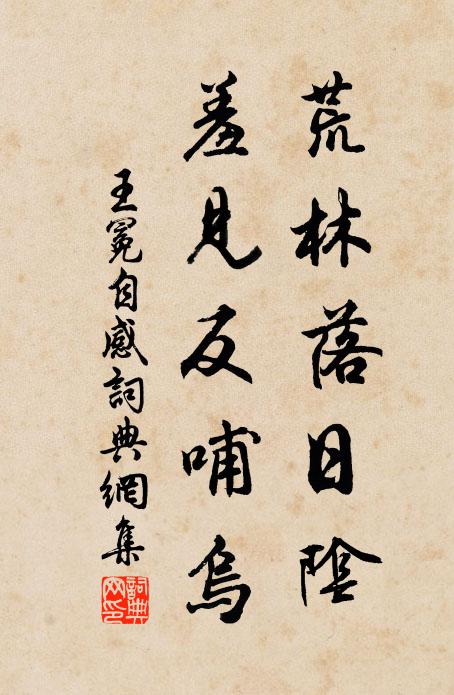 荒林落日陰
羞見反哺烏
王冕自感詞典網集
詞典